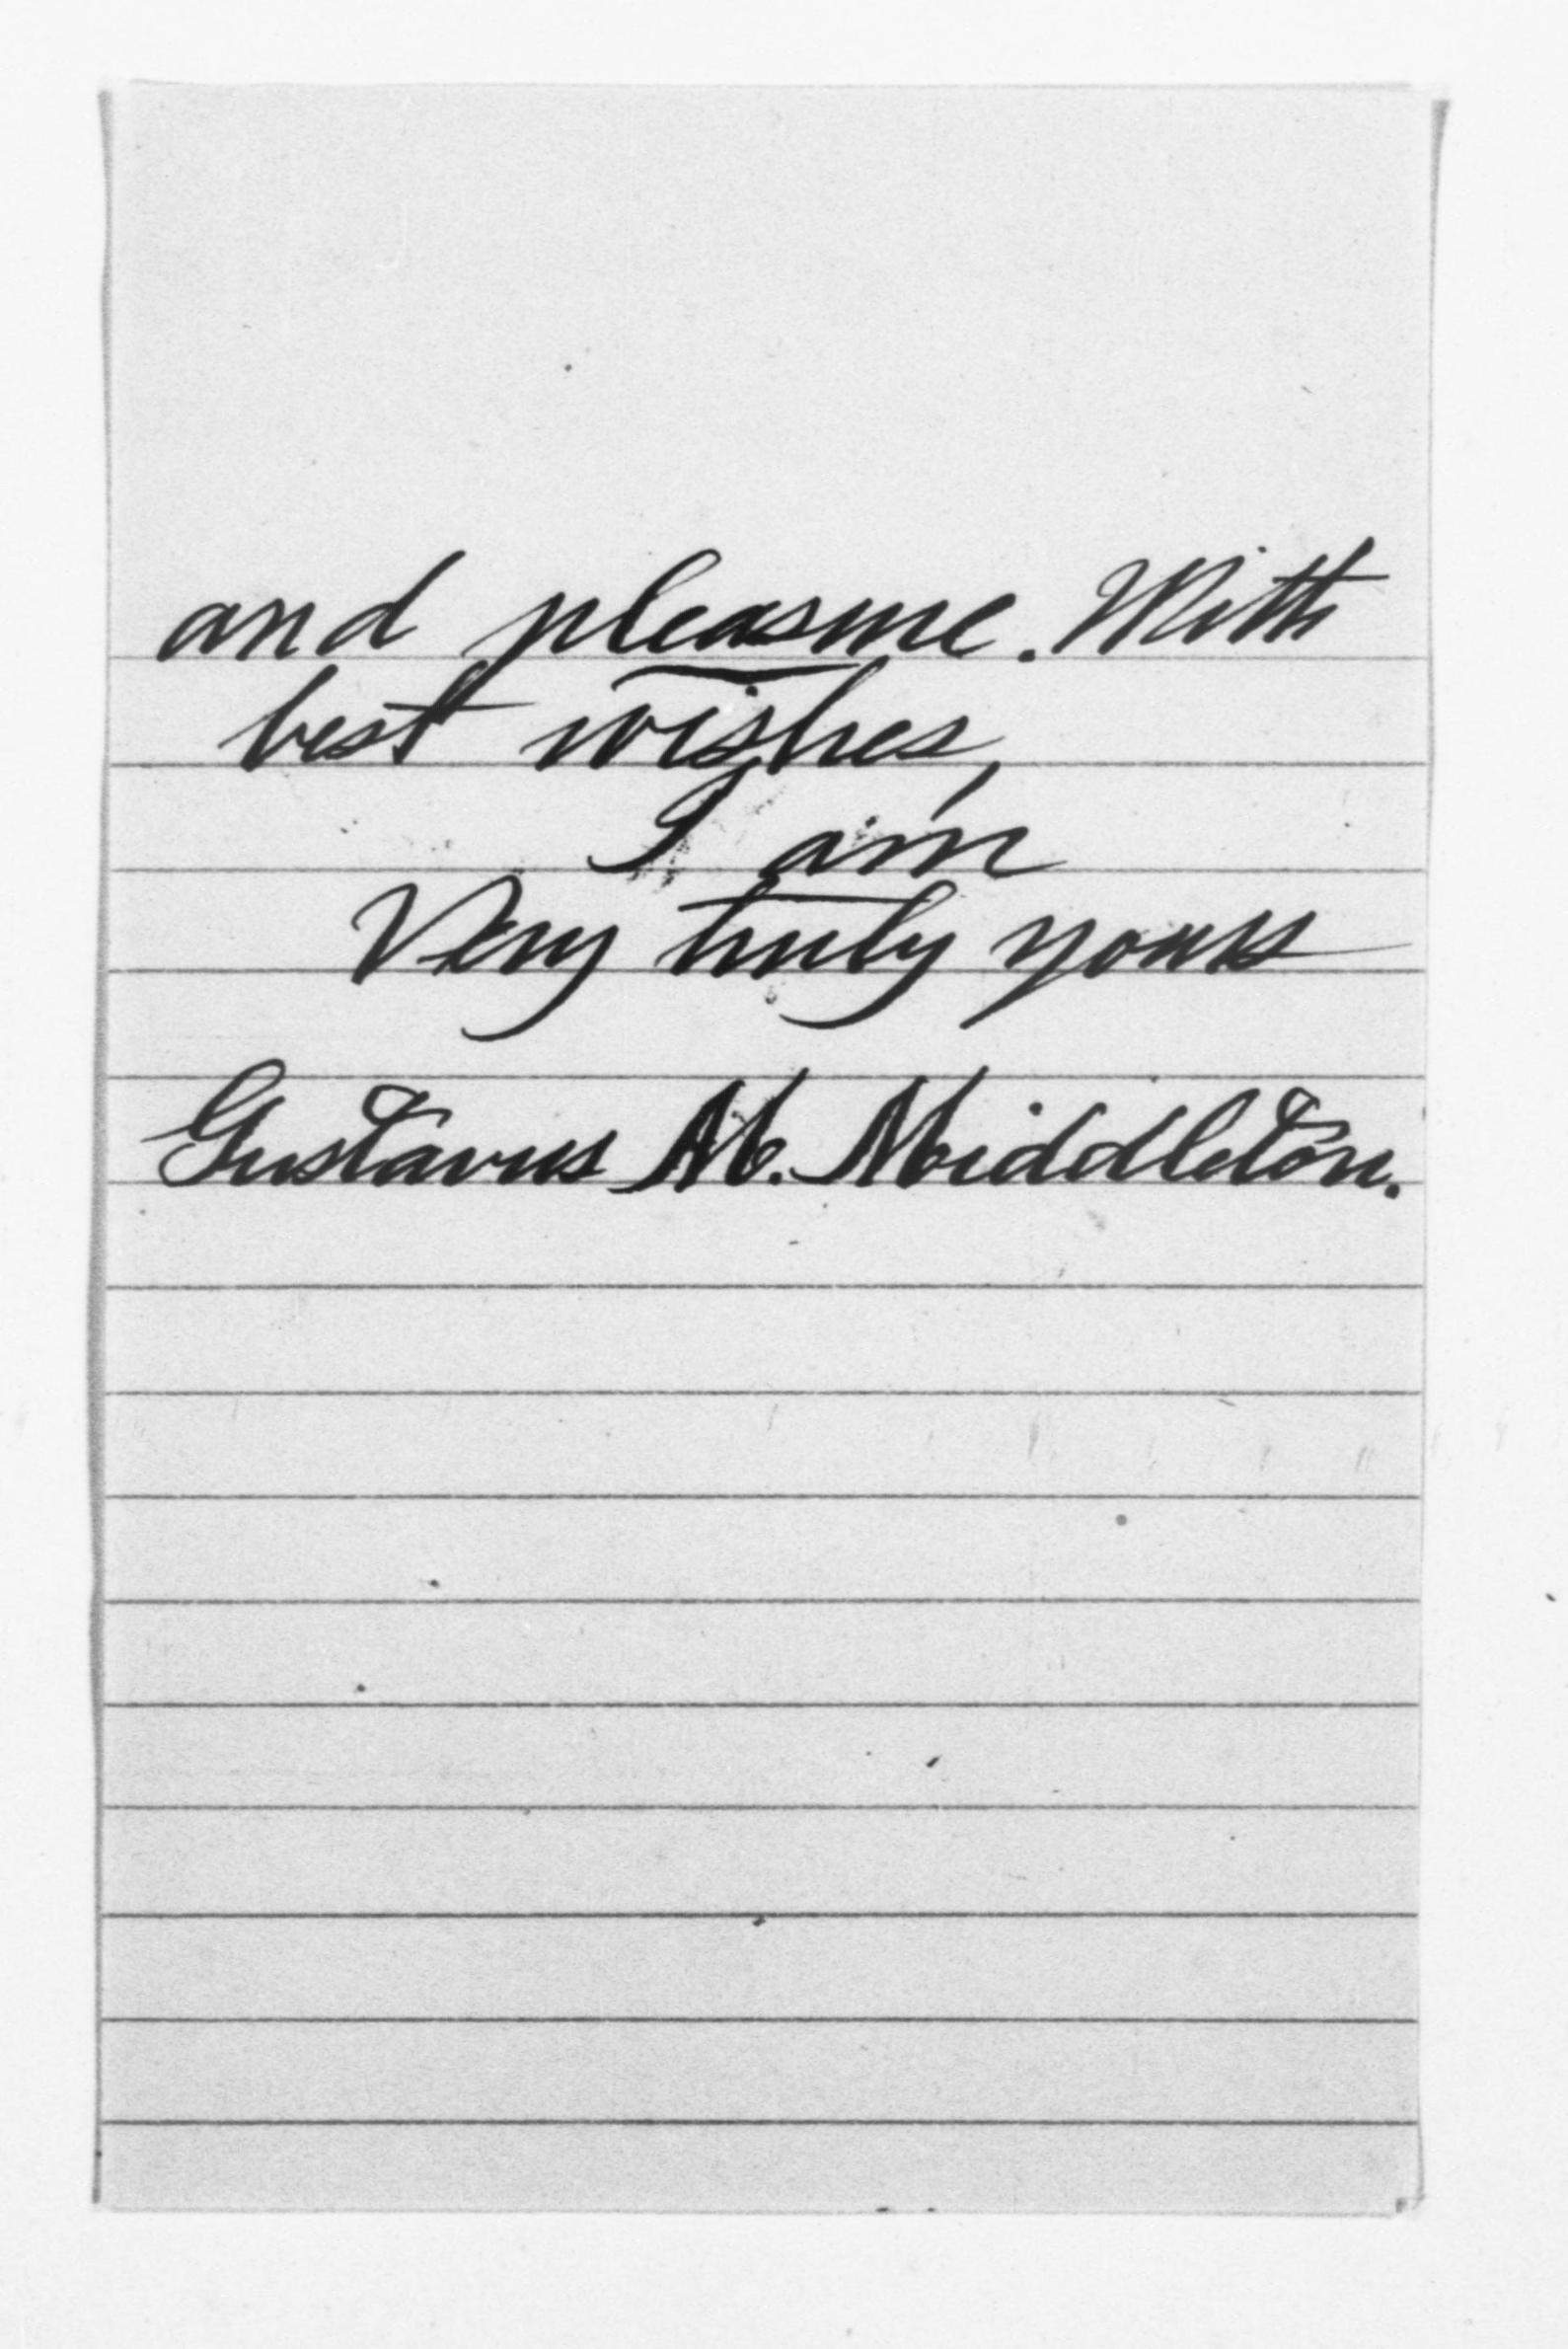 and pleasure. With
best wishes,
I am
Very truly yours
Gustavus M. Middleton.